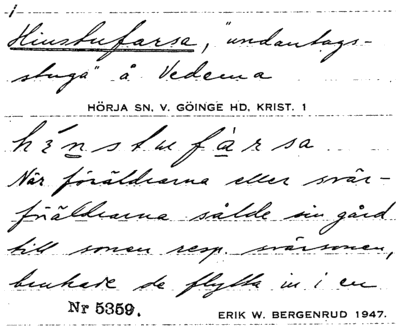 Hinstufarsa, "undantags-
stuga" å Vedema
HÖRJA SN. V. GÖINGE HD. KRIST. 1
hénstufàrsa
När föräldrarna eller svär-
föräldrarna sålde sin gård
till sonen resp. svärsonen,
brukade de flytta in i en
Nr 5359.
ERIK W. BERGENRUD 1947.